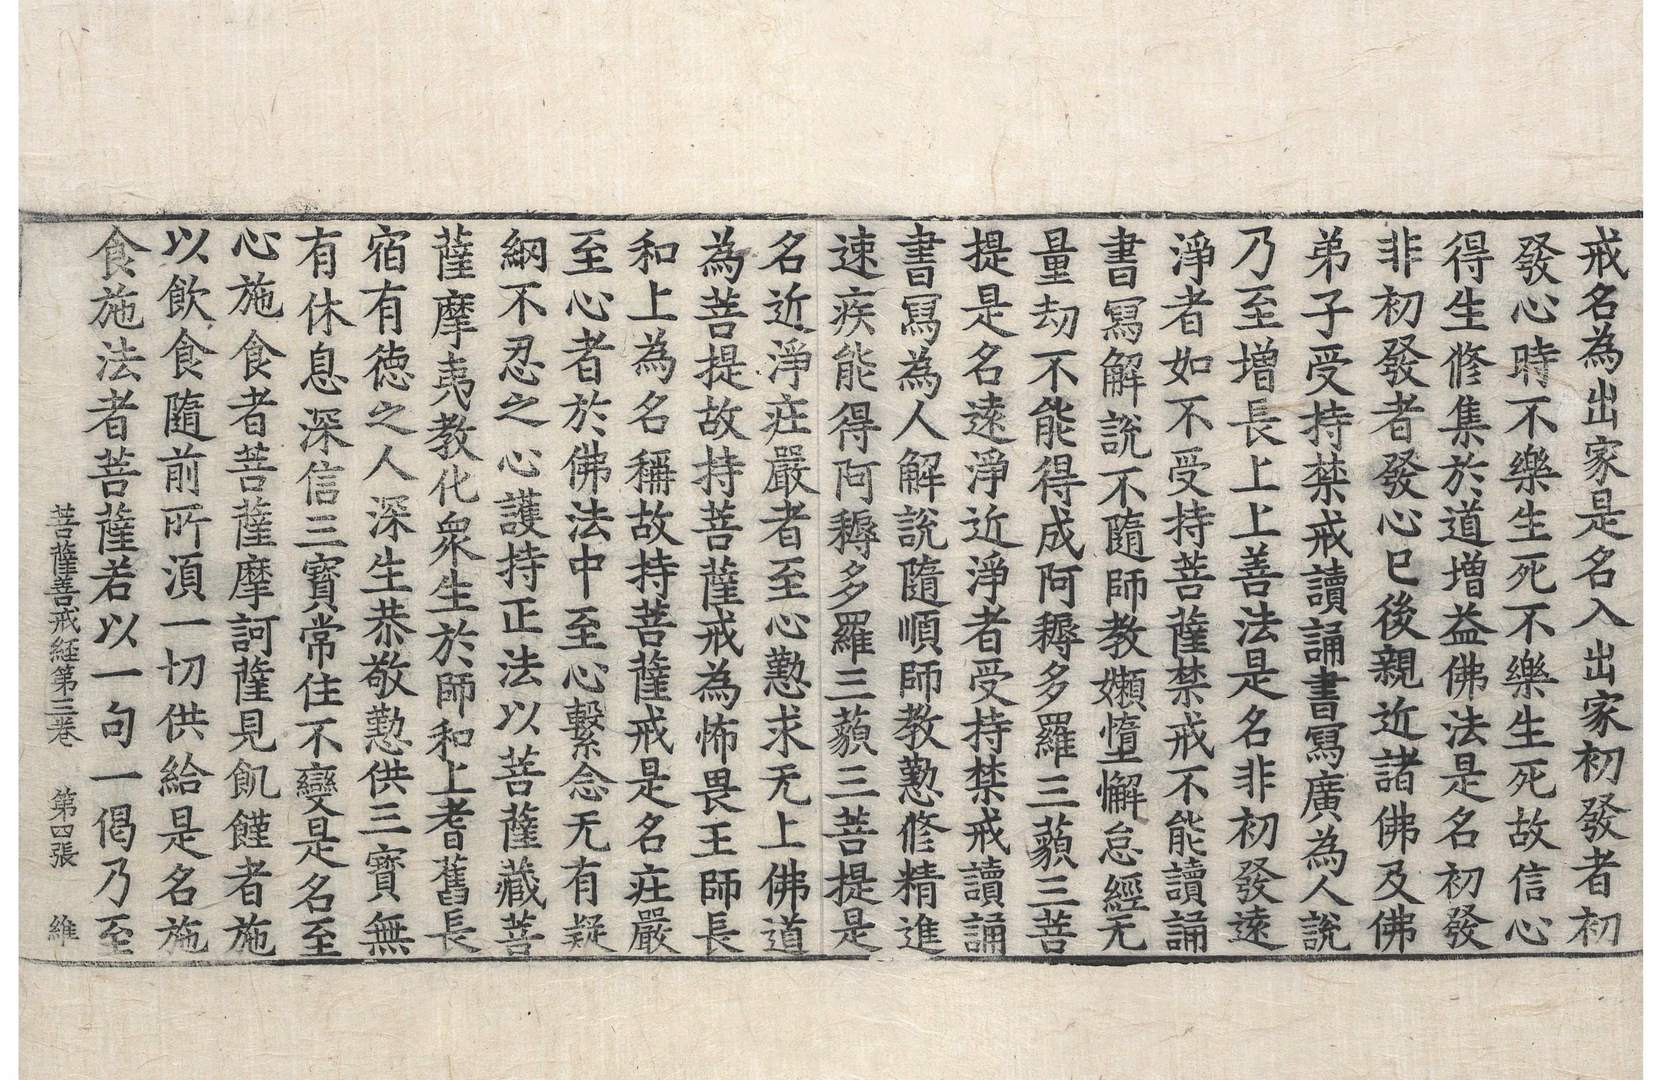 戒名為出家是名入出家初發者初
發心時不樂生死不樂生死故信心
得生修集於道增益佛法是名初發
非初發者發心已後親近諸佛及佛
弟子受持禁戒讀誦書寫廣為人說
乃至增長上上善法是名非初發遠
淨者如不受持菩薩禁戒不能讀誦
書寫解說不隨師教嬾墮懈怠經无
量劫不能得成阿耨多羅三藐三菩
提是名遠淨近淨者受持禁戒讀誦
書寫為人解說隨順師教懃修精進
速疾能得阿耨多羅三藐三菩提是
名近淨莊嚴者至心懃求无上佛道
為菩提故持菩薩戒為怖畏王師長
和上為名稱故持菩薩戒是名莊嚴
至心者於佛法中至心繫念无有疑
網不忍之心護持正法以菩薩藏菩
薩摩夷教化衆生於師和上耆舊長
宿有德之人深生恭敬懃供三寶無
有休息深信三寶常住不變是名至
心施食者菩薩摩訶薩見飢饉者施
以飲食隨前所須一切供給是名施
食施法者菩薩若以一句一偈乃至
菩薩善戒経第三巻 第四張 維